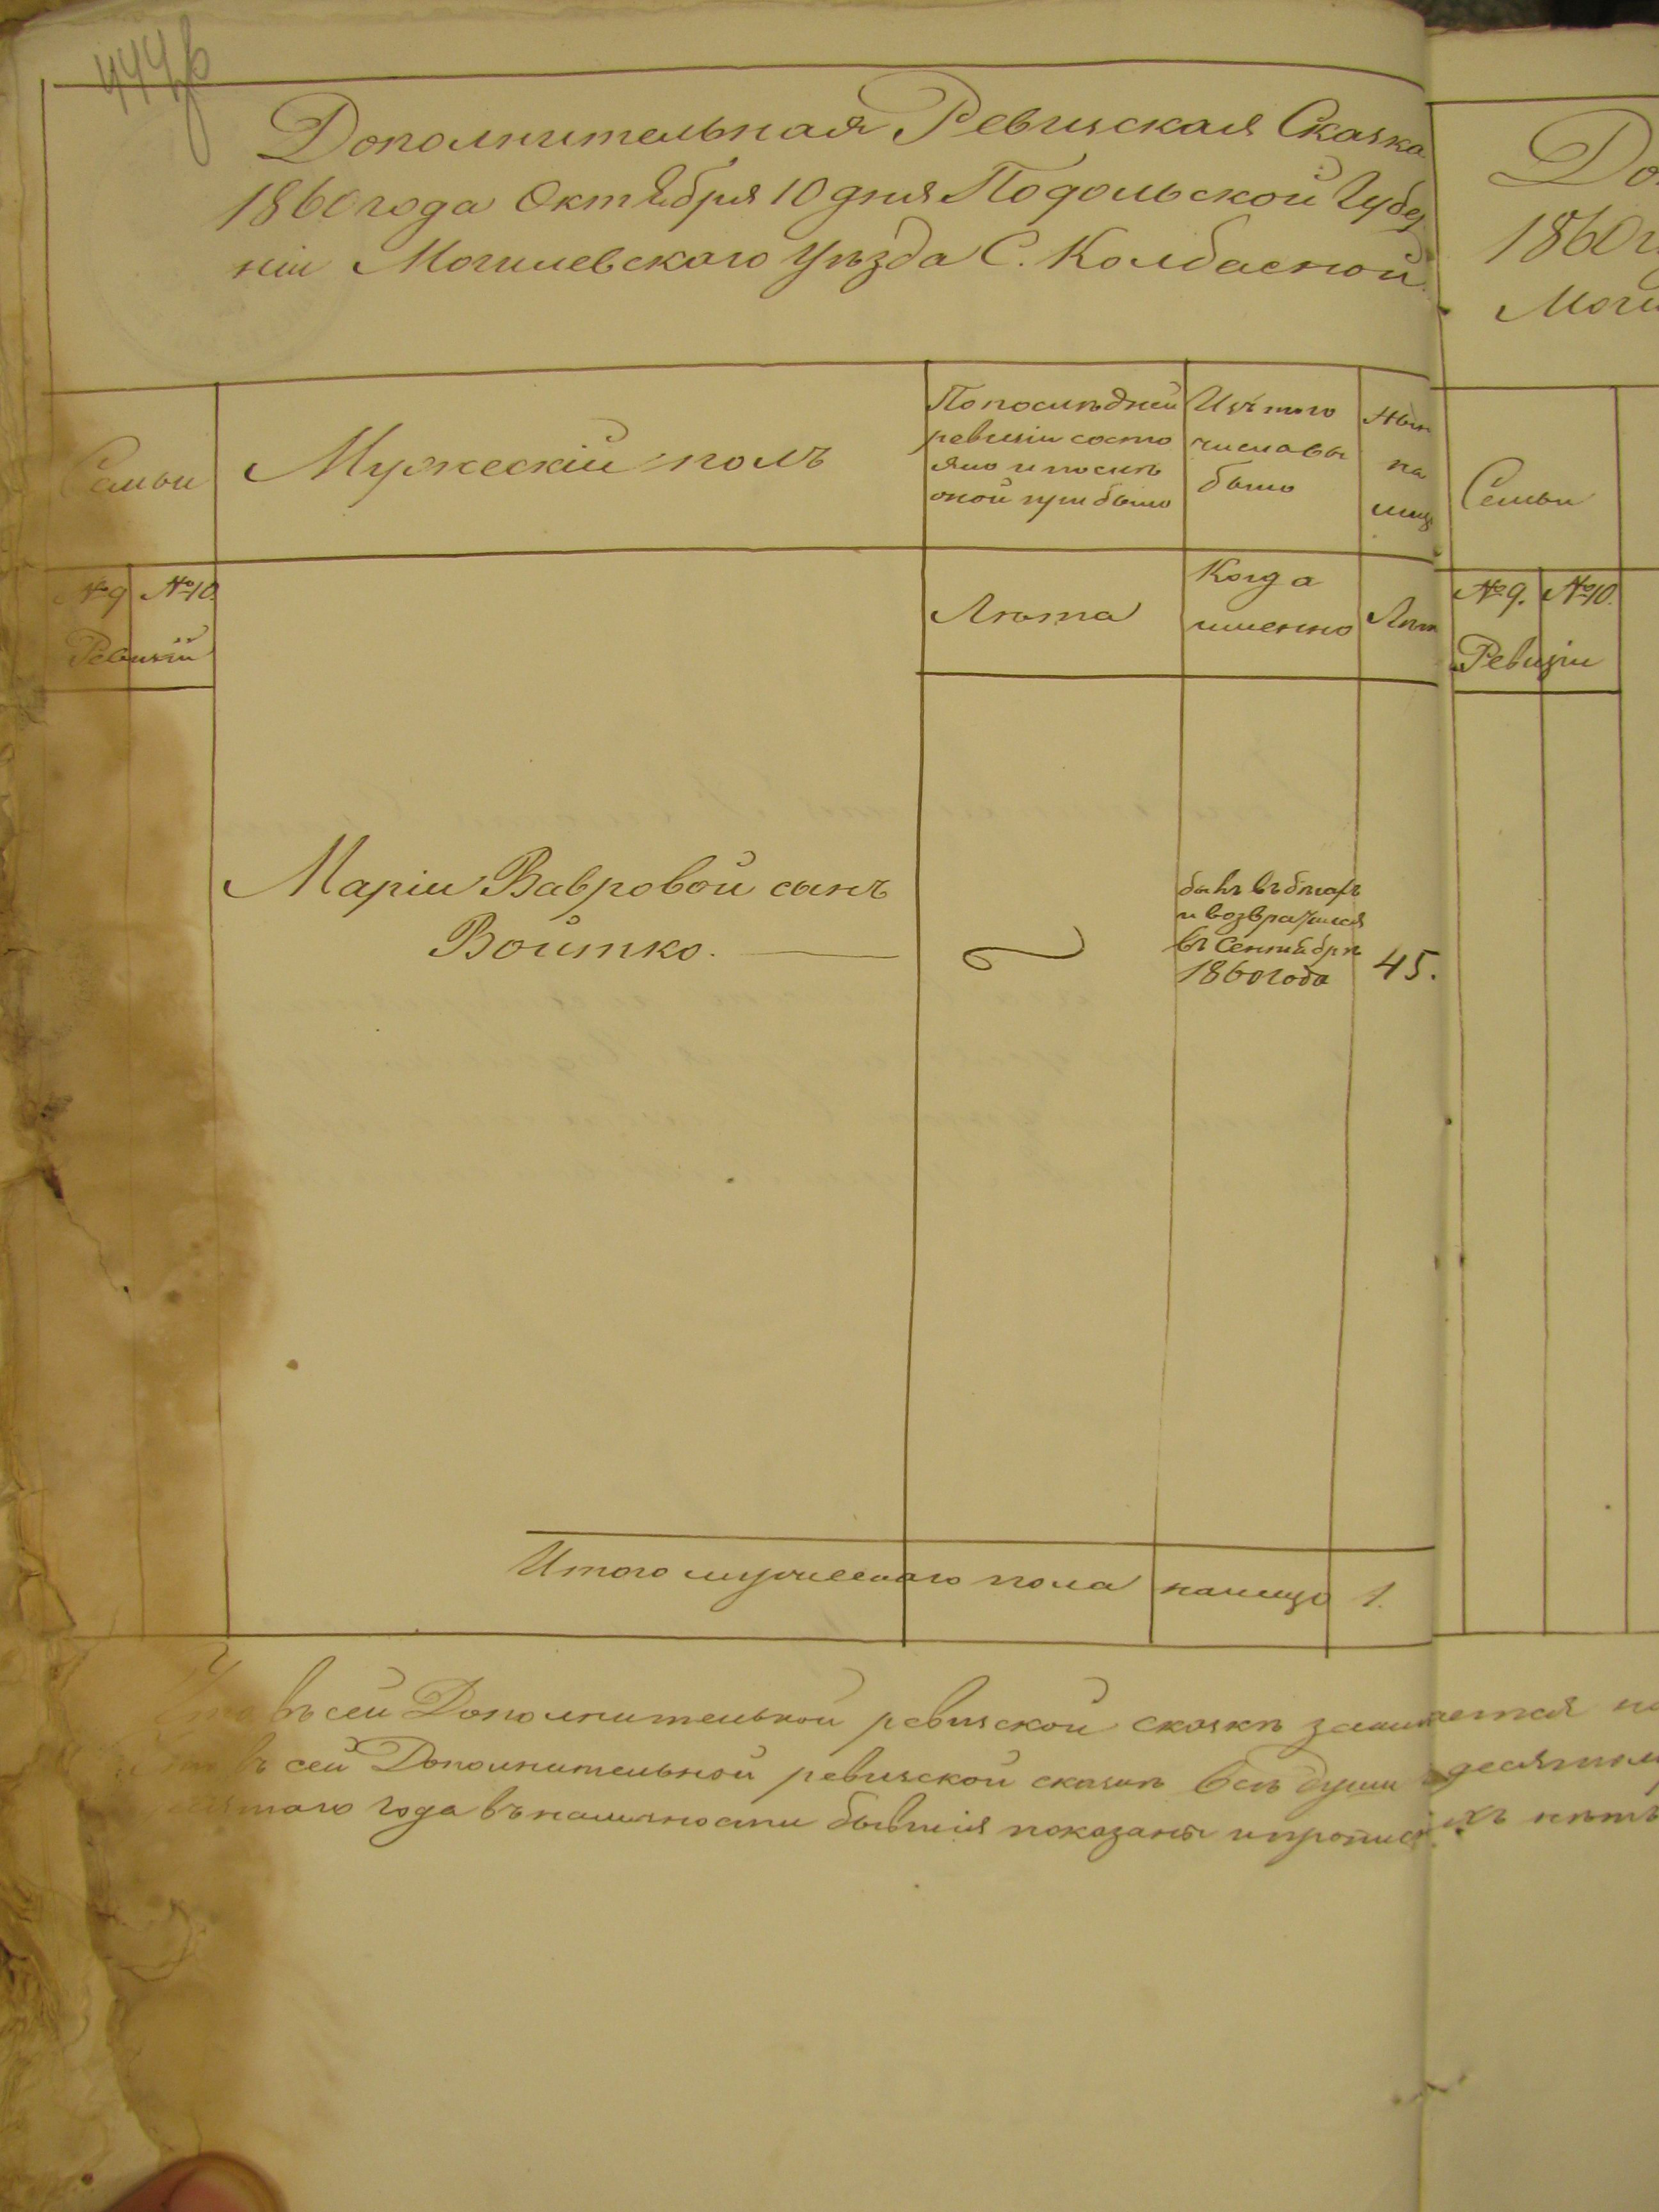 444об
Дополнительная Ревизская Сказка
1860 года Октября 10 дня Подольской Губер
ніи Могилевского Уѣзда С. Колбасной
Семьи
Мужескій полъ
По послѣдней
ревизіи состо
яло и послѣ
оной прибыло
Изъ того
числа вы
было
Нын
на
лиц
№9 №10.
Ревизій
Лѣта
Когда
именно
Лѣт
Маріи Вавровой сынъ
Войтко.
былъ въ бѣгахъ
и возвратился
въ Сентябрѣ
1860 года
45.
Итого мужескаго пола налицо 1.
въ сей Дополнительной ревизской сказкѣ
въ сей Дополнительной ревизской сказкѣ всѣ души
года въ наличности бывшія показаны и
До
1860 г
Моги
Семьи
№9. №10.
Ревизіи
ается
десятым
ихъ нѣтъ